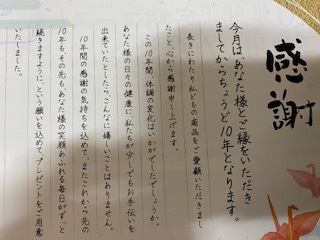 感謝
今月は、あなた様とご縁をいただき
ましてからちょうど10年となります。
長きにわたり、私どもの商品をご愛顧いただきまし
たこと、心から感謝申し上げます。
この10年間、体調の変化はいかがでしたでしょうか。
あなた様の日々の健康に、私たちが少しでもお手伝いを
出来ていたとしたら、こんなに嬉しいことはありません。
10年間の感謝の気持ちを込めて、またこれから先の
10年も、その先も、あなた様の笑顔あふれる毎日がずっと
続きますように、という願いを込めて、プレゼントをご用意
いたしました。